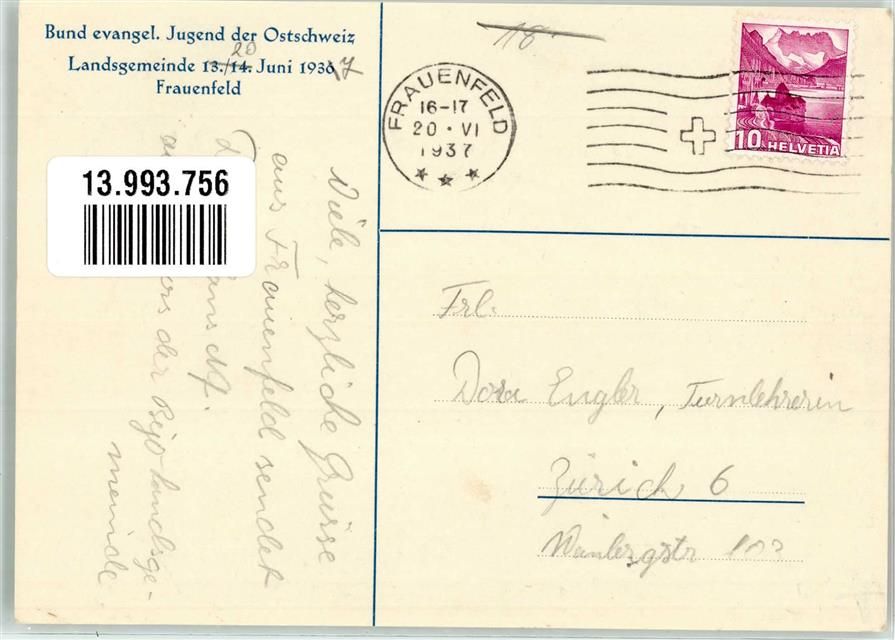 Bund evangel. Jugend der Ostschweiz
20
Landsgemeinde 13./14. Juni 1936 7
Frauenfeld
18.
FRAUENFELD
16-17
20 · VI
1937
10 HELVETIA
13.993.756
Viele, herzliche Grüsse
aus Frauenfeld sendet
der Bejo-Landsge-
meinde.
Frl.
Dora Engler, Turnlehrerin
Zürich 6
Weinbergstr